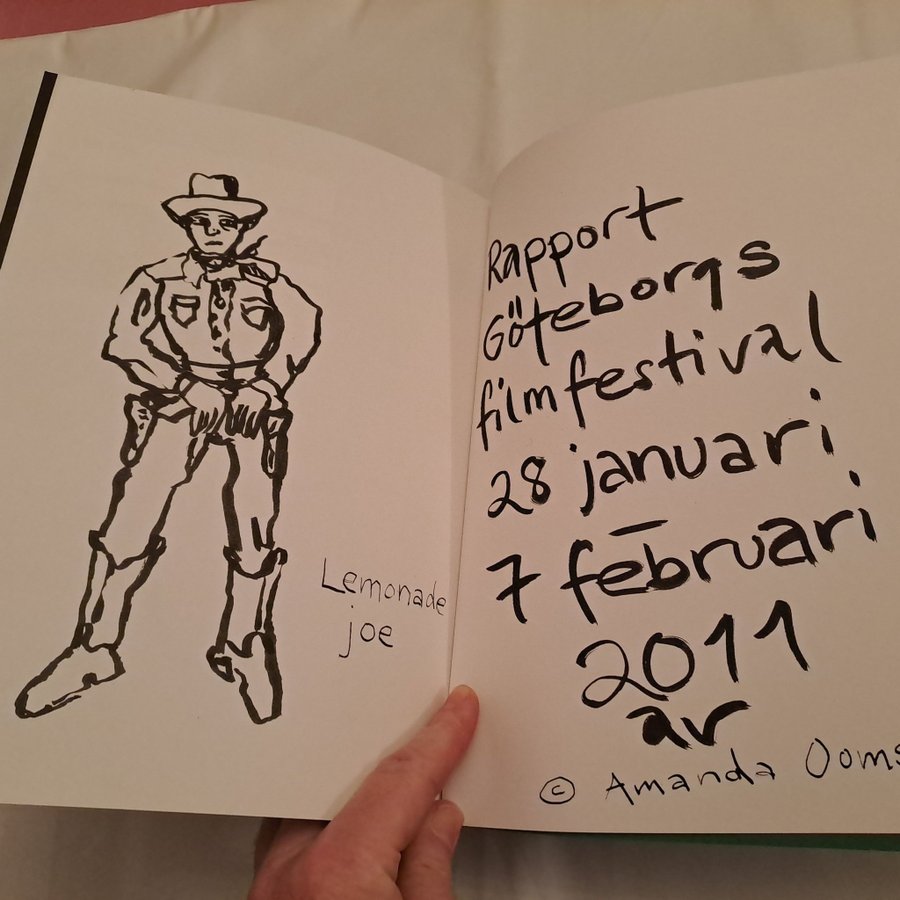 Lemonade
joe
Rapport
Göteborgs
filmfestival
28 januari
7 februari
2011
år
© Amanda Ooms